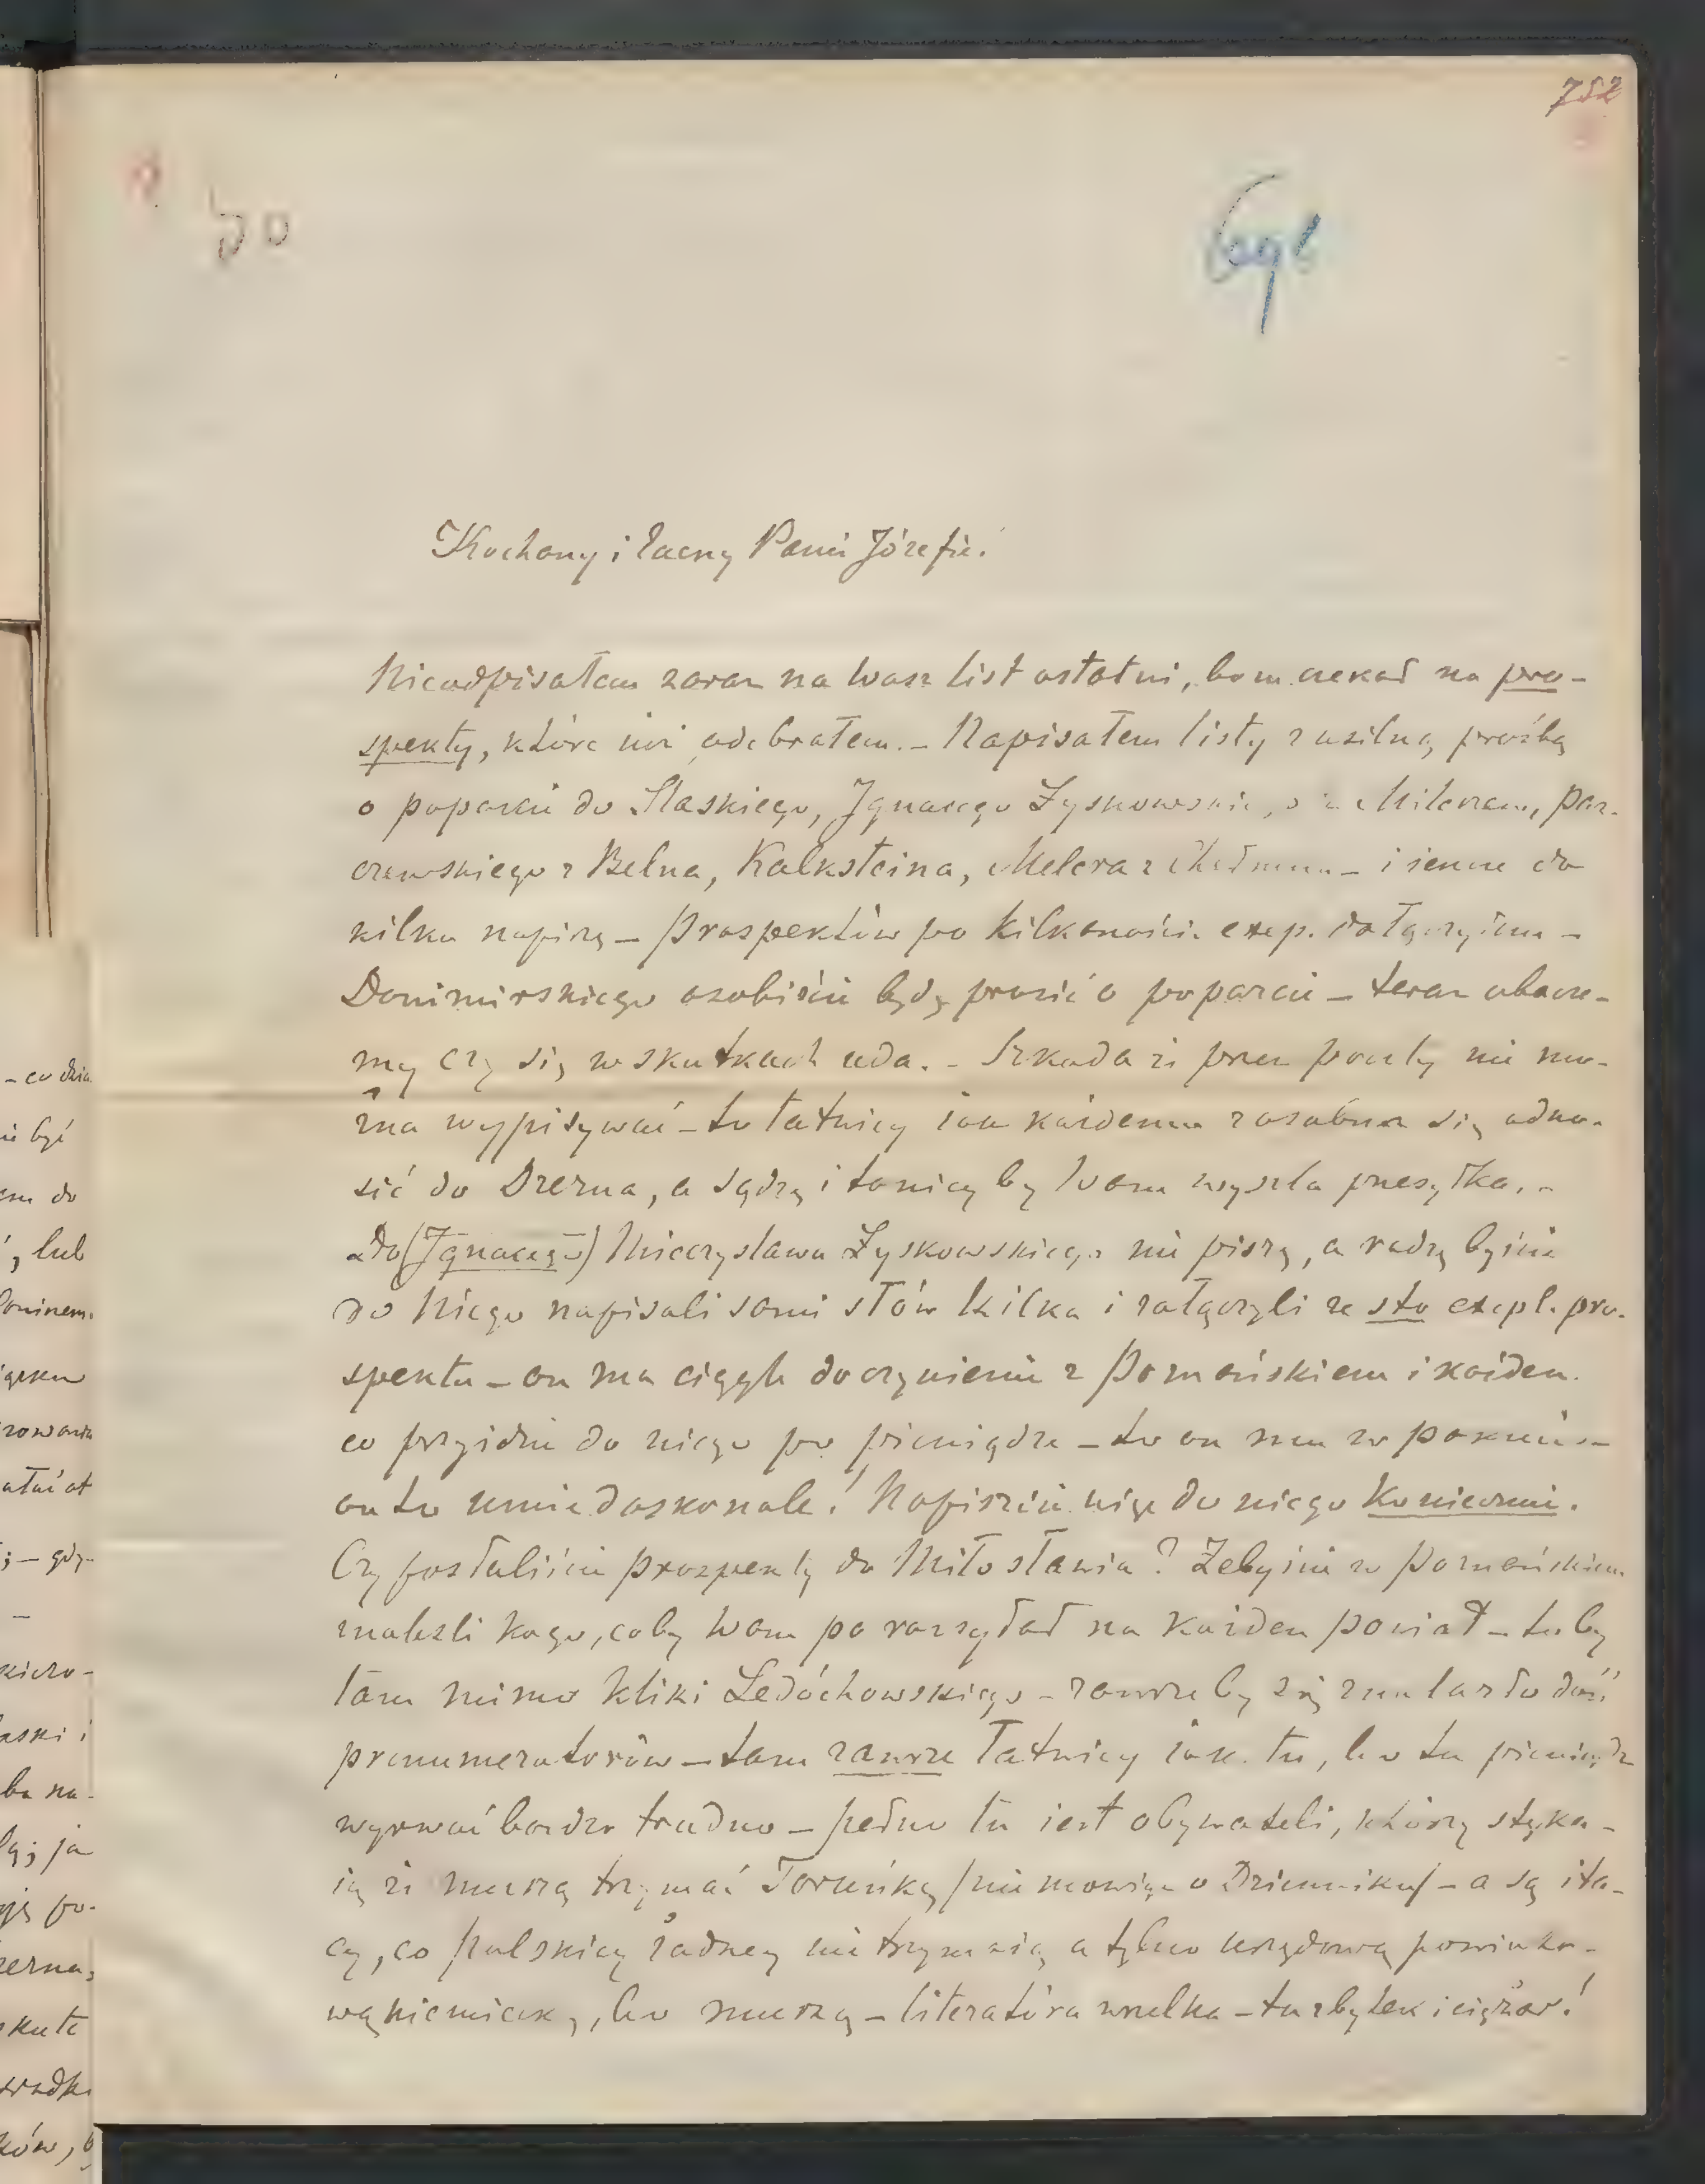 752
50
Kochany i Zacny Panie Józefie!
Nieodpisałem zaraz na Wasz list ostatni, bom czekał na pro-
spekty, które już odebrałem. – Napisałem listy z usilną prośbą
o poparcie do Slaskiego, Ignacego Łyskowskie, Par-
czewskiego z Belna, Kalksteina, Melera z – i ieszcze do
kilku napiszę – Prospektów po kilkanaście exep. dołączyłem –
Donimirskiego osobiście będę prosić o poparcie – teraz obacze-
my czy się w skutkach uda. – Szkoda że przez poczty nie mo-
żna wypisywać – to łatwiey iak każdemu zosobna się odno-
sić do Drezna, a sądzę i taniey by Wam wyszła przesyłka. –
Do (Ignacego) Mieczysława Łyskowskiego nie piszę, a radzę byście
do Niego napisali sami słów kilka i załączyli ze sto exepl. pro-
spektu – on ma ciągłe doczynienie z Poznańskiem i każden
co przyidzie do niego po pieniądze – to on mu w
on to umie doskonale! Napiszcie więc do niego koniecznie.
Czy posłaliście prospekty do Miłosławia? Żebyście w Poznańskiem
znaleźli kogo, coby Wam porozsyłał na każden powiat – to by
tam mimo kliki Ledóchowskiego – zawsze by się znalazło dość
prenumeratorów – tam zawsze łatwiey iak tu, bo tu pieniądz
wyrwać bardzo trudno – pełno tu iest obywateli, którzy styka-
ią że muszą trzymać Toruńką /nie mowiąc o Dzienniku/ – a są i ta-
cy, co Polskiey żadney nie trzymaią a tylko urzędową powiato-
wą niemiecką, bo muszą – literatóra wszelka – to zbytek i ciężar!